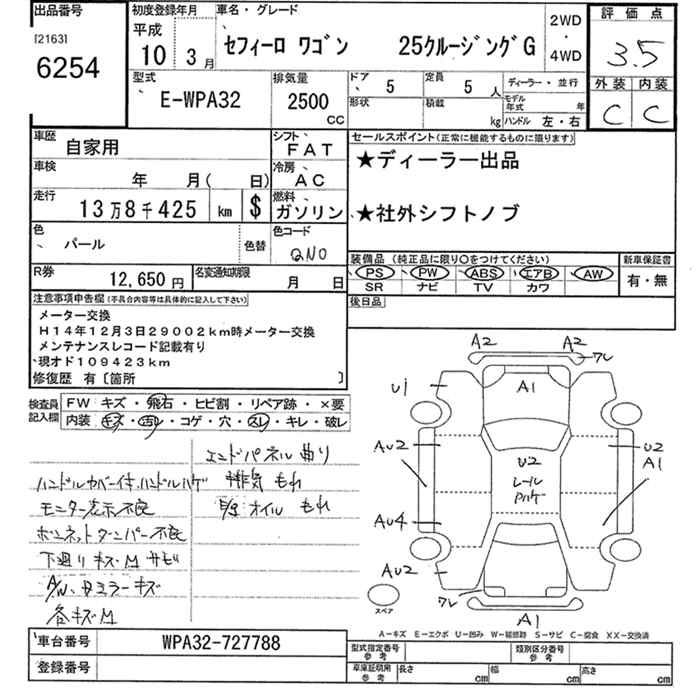 出品番号 初度登録年月 車名・グレード 2WD・4WD 評価点
[2163] 平成 10 3月 セフィーロ ワゴン 25クルージングG 3.5
6254 型式 排気量 ドア 5 定員 5人 ディーラー・並行 外装 内装
E-WPA32 2500CC 形状 積載 kg モデル年式 年 C C
ハンドル 左・右
車歴 自家用 シフト FAT セールスポイント(正常に機能するものに限ります)
車検 年 月( 日) 冷房 AC ★ディーラー出品
走行 13万8千425 km $ 燃料 ガソリン ★社外シフトノブ
色 パール 色替 色コード QN0
装備品(純正品に限り○をつけてください) 新車保証書
PS PW ABS エアB AW 有・無
SR ナビ TV カワ
R券 12,650円 名変通知期限 月 日
後日品
注意事項申告欄(不具合内容等は具体的に記入して下さい)
メーター交換
H14年12月3日29002km時メーター交換
メンテナンスレコード記載有り
現オド109423km
修復歴 有〔箇所 〕
検査員記入欄 FW キズ・飛石・ヒビ割・リペア跡・×要
内装 キズ・汚レ・コゲ・穴・スレ・キレ・破レ
エンドパネル曲り
ハンドルカバー付、ハンドルハゲ 排気 もれ
モニター表示不良 E/g オイル もれ
ボンネットダンパー不良
下廻りキズM サビ
A/W、ミラーキズ
各キズM
A2 A2
ワレ
U1 A1
AU2 U2 U2
A1
レール
Pハゲ
AU4
AU2
ワレ
スペア A1
A-キズ E-エクボ U-凹み W-補修跡 S-サビ C-腐食 XX-交換済
車台番号 WPA32-727788 型式指定番号 参考 類別区分番号 参考
登録番号 車庫証明用 参考 長さ cm 幅 cm 高さ cm